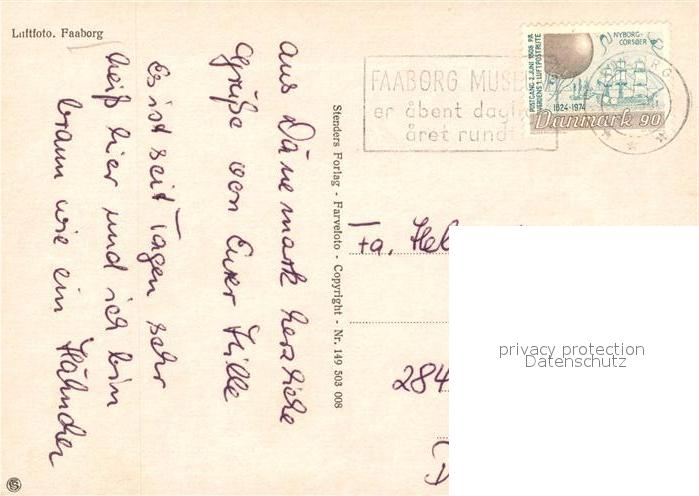 Luftfoto. Faaborg
aus Dänemark herzliche
Grüße von Eurer Hille
Es ist seit Tagen sehr
heiß hier und ich bin
braun wie ein Hähnchen
Stenders Forlag - Farvefoto - Copyright - Nr. 149 503 008
FAABORG MUSE
er åbent dagl
året rundt
NYBORG-
CORSØER
POSTGANG 2. JUNI 1808 PR.
VERDENS 1. LUFTPOSTRUTE
1624-1974
Danmark 90
Fa.
284
D
privacy protection
Datenschutz